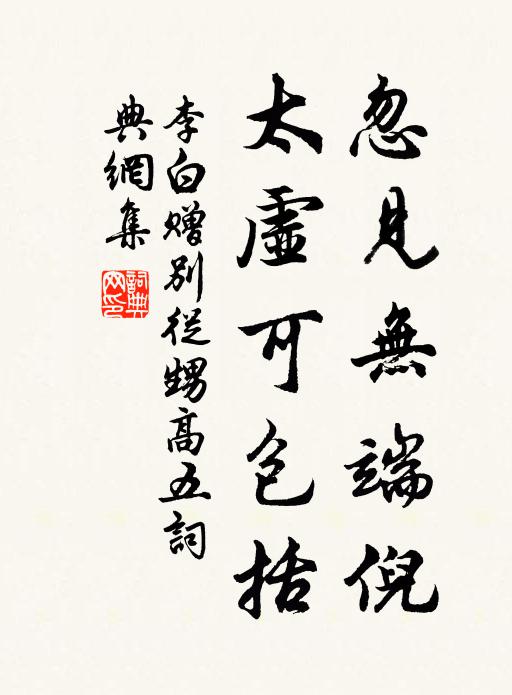 忽見無端倪
太虛可包括
李白贈別從甥高五詞
典網集
詞典網印